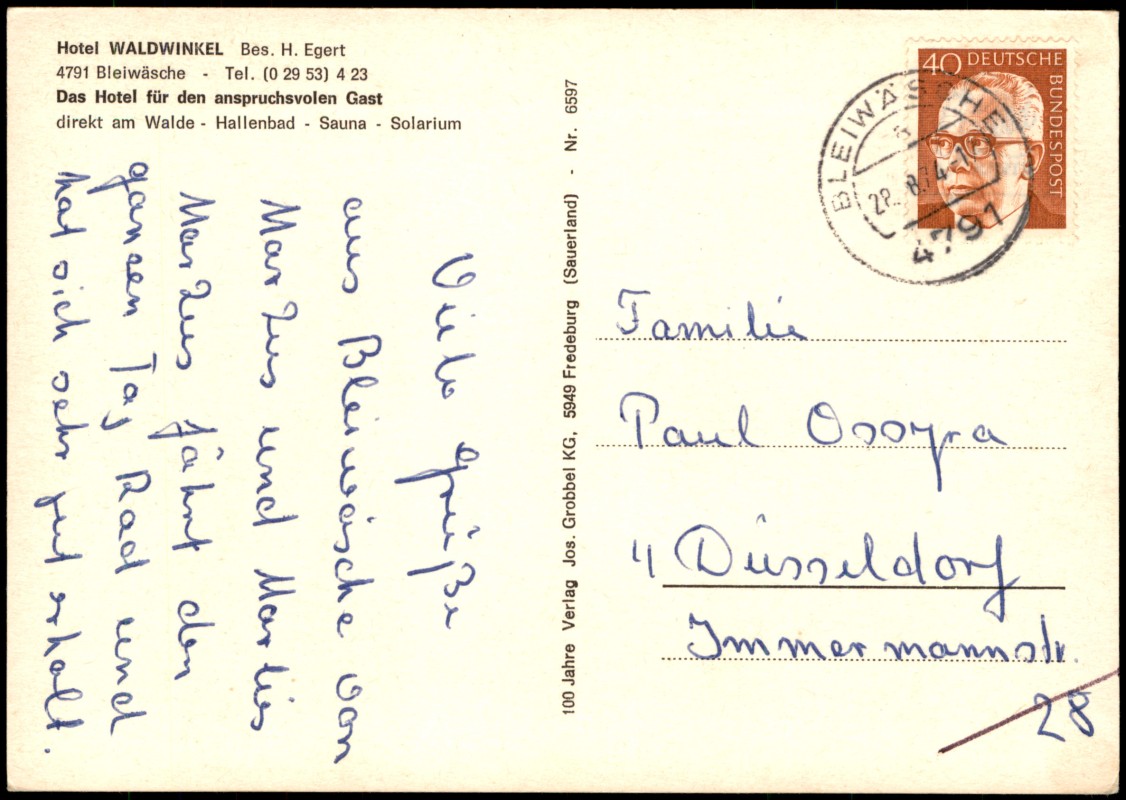 Hotel WALDWINKEL Bes. H. Egert
4791 Bleiwäsche - Tel. (0 29 53) 4 23
Das Hotel für den anspruchsvolen Gast
direkt am Walde - Hallenbad - Sauna - Solarium
Viele Grüße
aus Bleiwäsche von
Markus und Marlies
Markus fährt den
ganzen Tag Rad und
hat sich sehr gut erholt.
100 Jahre Verlag Jos. Grobbel KG, 5949 Fredeburg (Sauerland) - Nr. 6597
40 DEUTSCHE
BUNDESPOST
BLEIWÄSCHE
28. 8.74-1
4791
Familie
Paul Ossyra
4 Düsseldorf
Immermannstr.
28